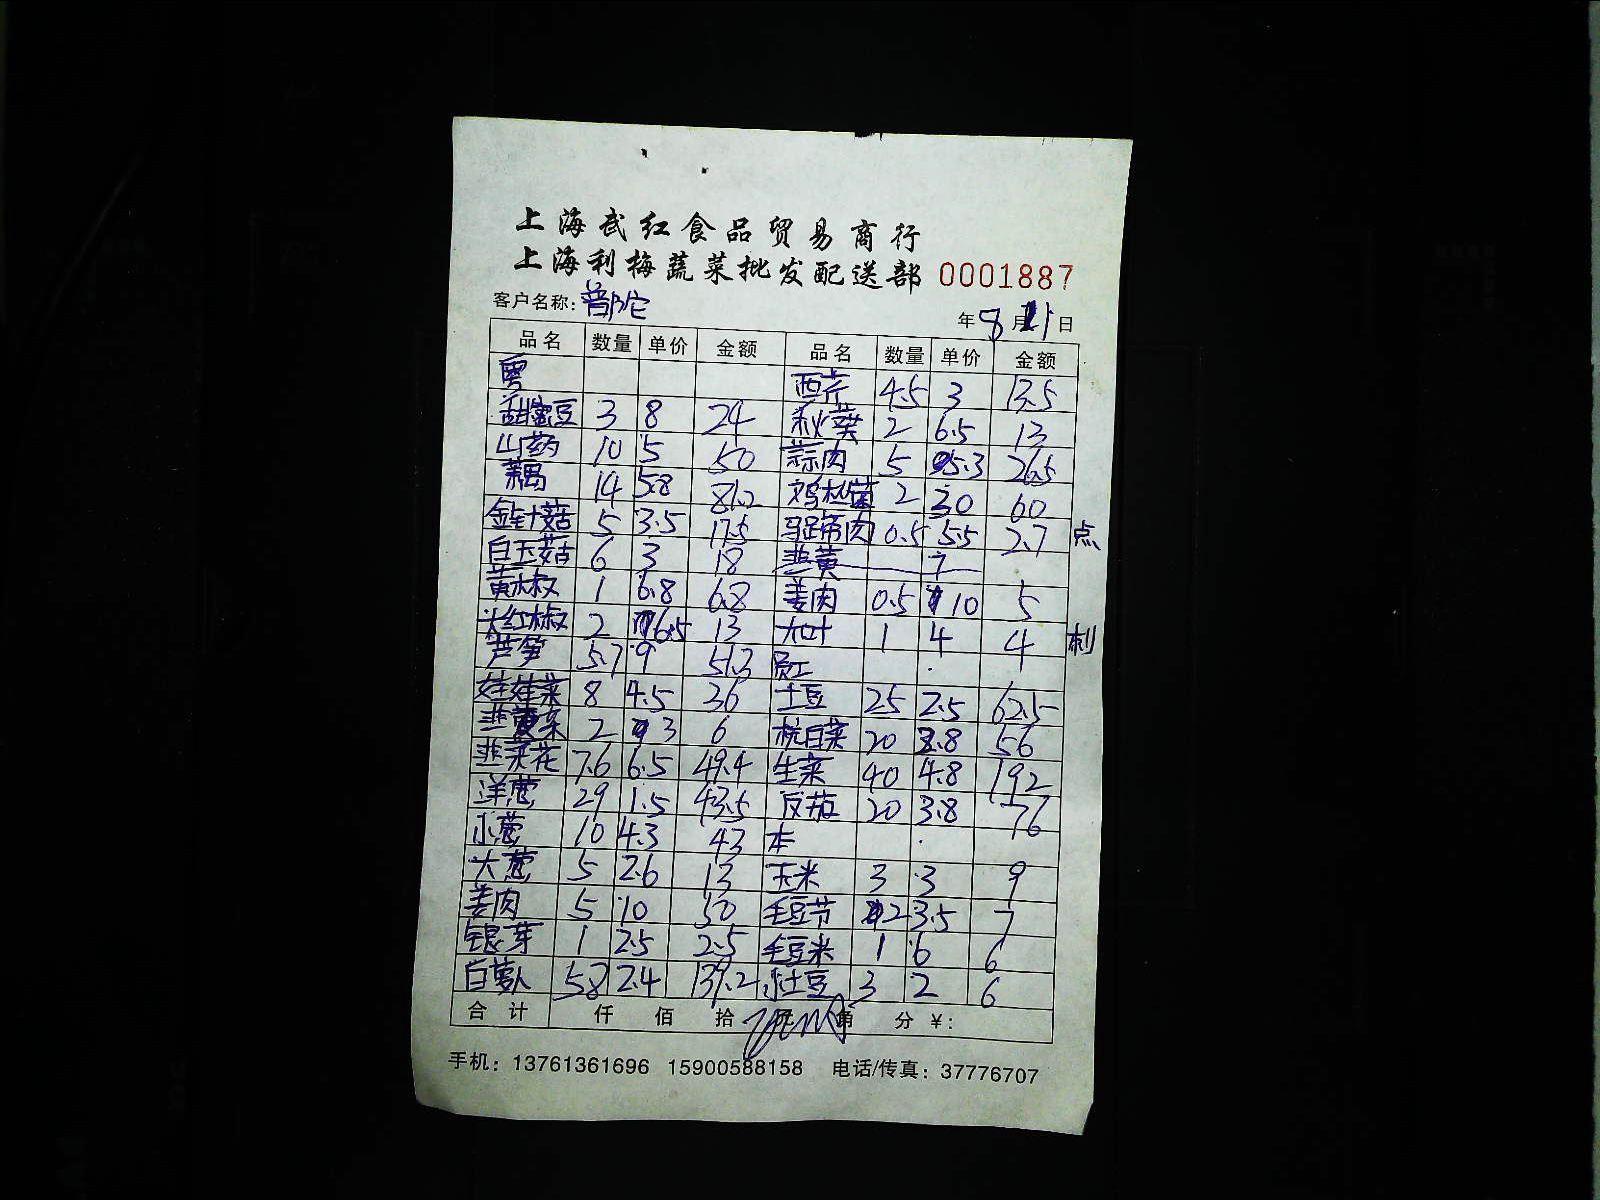 上海武红食品贸易商行
上海利梅蔬菜批发配送部 0001887
客户名称: 普陀
年 8 月 21 日
品名 数量 单价 金额 品名 数量 单价 金额
粤 西芹 4.5 3 13.5
甜蜜豆 3 8 24 秋葵 2 6.5 13
山药 10 5 50 蒜肉 5 5.3 26.5
藕 14 5.8 81.2 鸡枞菌 2 30 60
金针菇 5 3.5 17.5 马蹄肉 0.5 5.5 2.7 点
白玉菇 6 3 18 韭黄 7
黄椒 1 6.8 6.8 姜肉 0.5 10 5
尖红椒 2 6.5 13 大叶 1 4 4 刺
芦笋 5.7 9 51.3 员工
娃娃菜 8 4.5 36 土豆 25 2.5 62.5
韭菜 2 3 6 杭白菜 20 2.8 56
韭菜花 7.6 6.5 49.4 生菜 40 4.8 192
洋葱 29 1.5 43.5 反茄 20 3.8 76
小葱 10 4.3 43 本
大葱 5 2.6 13 玉米 3 3 9
姜肉 5 10 50 毛豆节 2 3.5 7
银芽 1 2.5 2.5 毛豆米 1 6 6
白萝卜 58 2.4 139.2 小土豆 3 2 6
合计 仟 佰 拾 元 角 分 ¥:
手机: 13761361696 15900588158 电话/传真: 37776707